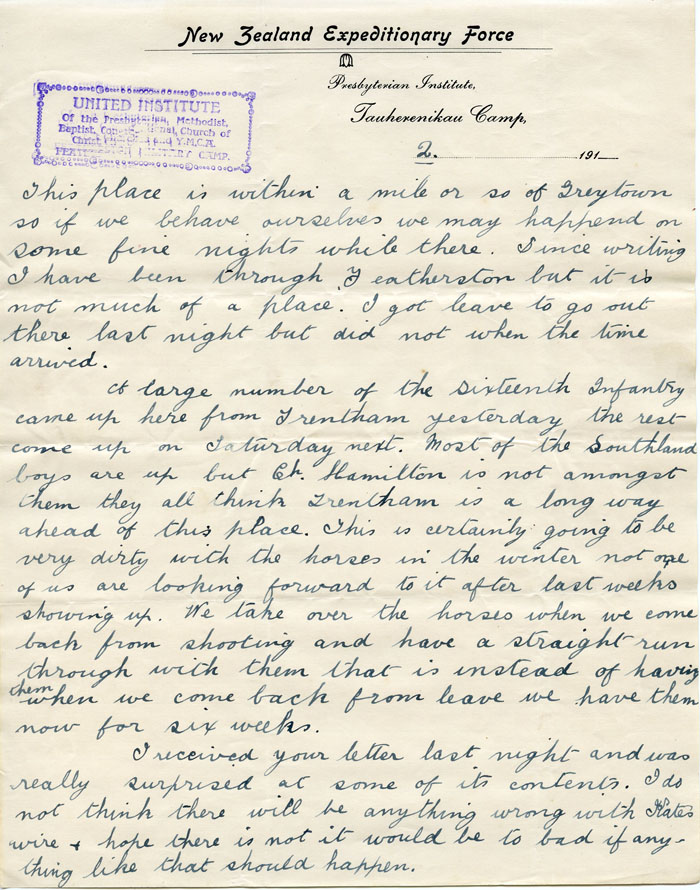 New Zealand Expeditionary Force
Presbyterian Institute,
Tauherenikau Camp,
UNITED INSTITUTE
Of the Presbyterian, Methodist,
Baptist, Congregational, Church of
Christ and Y.M.C.A.
MILITARY CAMP.
2. 191
This place is within a mile or so of Greytown
so if we behave ourselves we may happend on
some fine nights while there. Since writing
I have been through Featherston but it is
not much of a place. I got leave to go out
there last night but did not when the time
arrived.
A large number of the Sixteenth Infantry
came up here from Trentham yesterday the rest
come up on Saturday next. Most of the Southland
boys are up but Ch. Hamilton is not amongst
them they all think Trentham is a long way
ahead of this place. This is certainly going to be
very dirty with the horses in the winter not one
of us are looking forward to it after last weeks
showing up. We take over the horses when we come
back from shooting and have a straight run
through with them that is instead of having
them when we come back from leave we have them
now for six weeks.
I received your letter last night and was
really surprised at some of its contents. I do
not think there will be anything wrong with Kates
wire + hope there is not it would be to bad if any-
thing like that should happen.